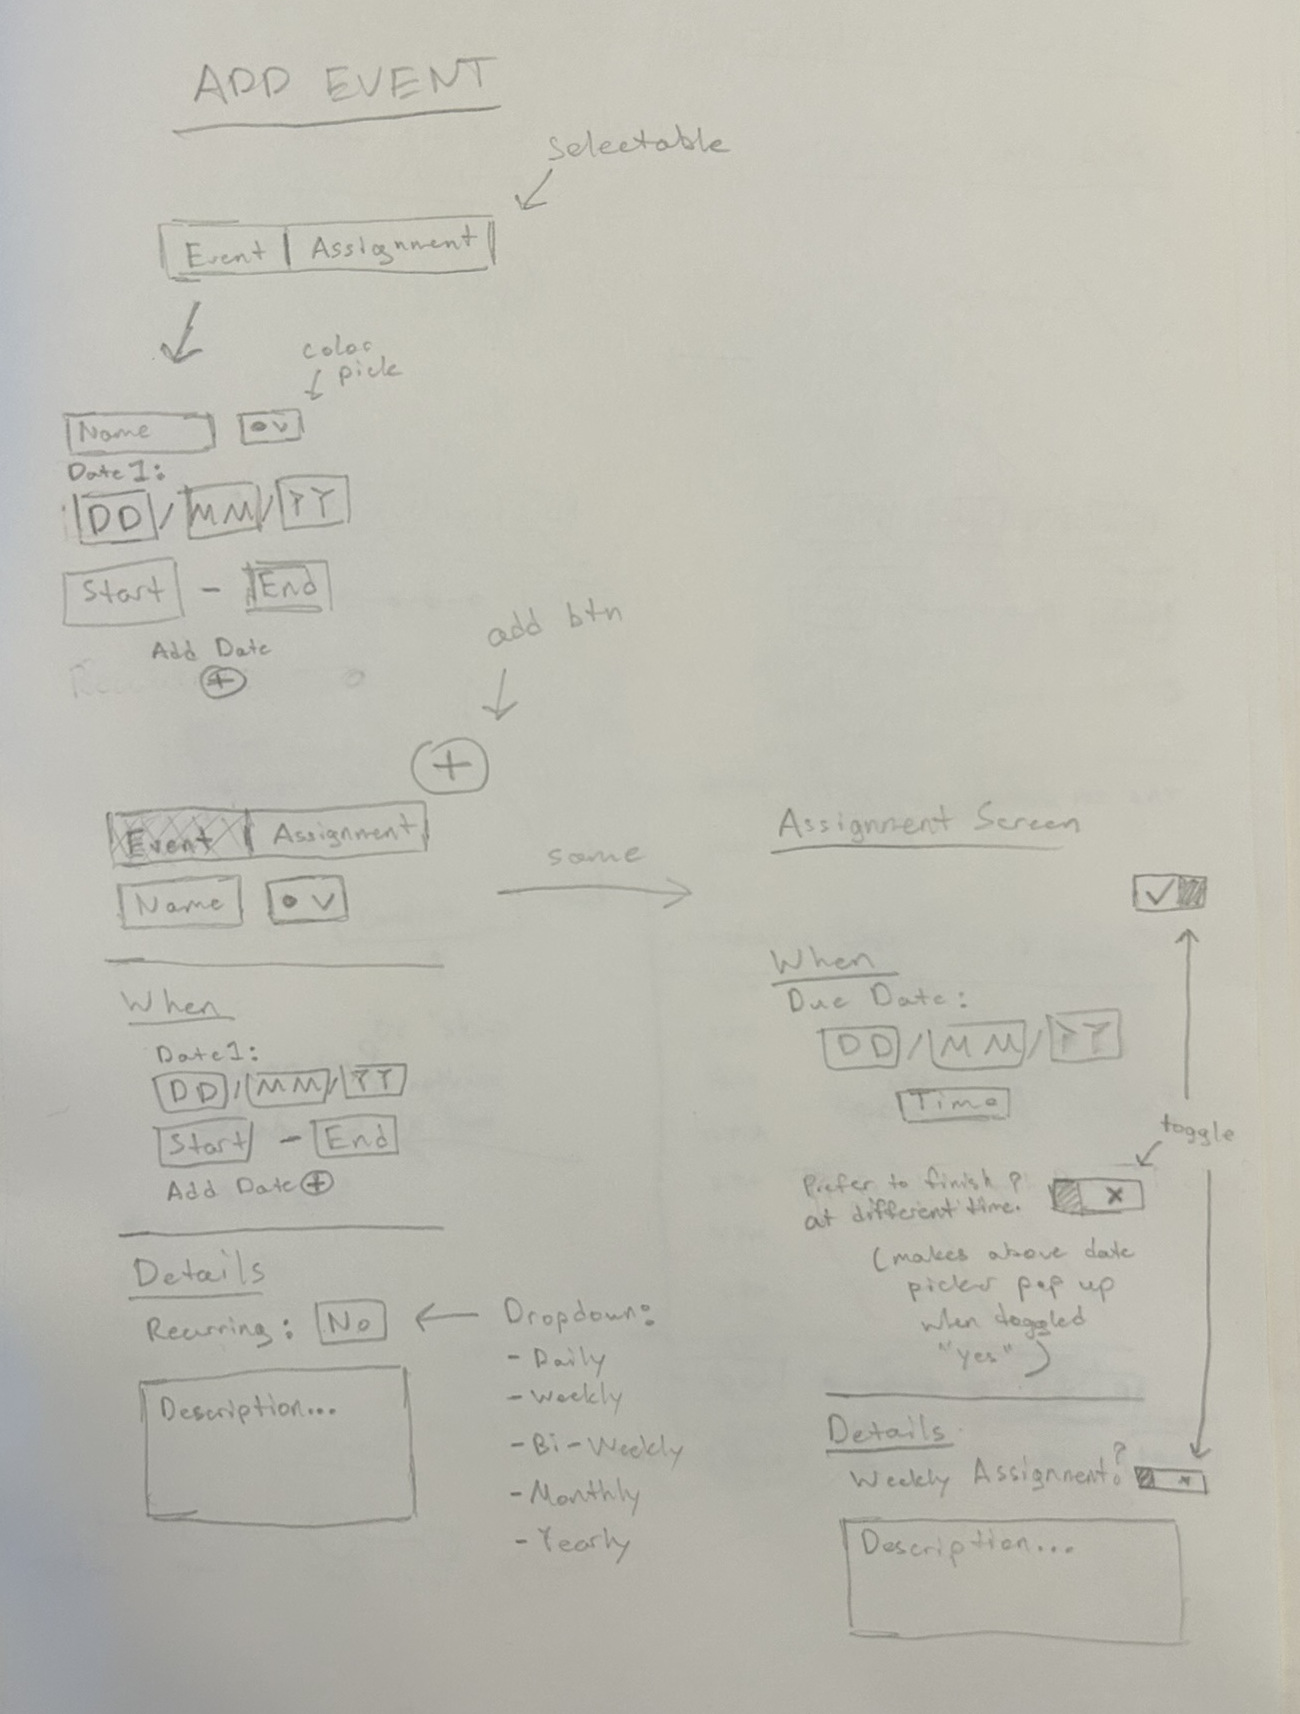 ADD EVENT
selectable
Event | Assignment
color
pick
Name
Date 1:
DD / MM / YY
Start - End
Add Date
+
add btn
+
Event | Assignment
Name
When
Date 1:
DD / MM / YY
Start - End
Add Date +
Details
Recurring: No
Description...
Dropdown:
- Daily
- Weekly
- Bi-Weekly
- Monthly
- Yearly
same
Assignment Screen
When
Due Date:
DD / MM / YY
Time
toggle
Prefer to finish ?
at different time.
(makes above date
picker pop up
when toggled
"yes")
Details
Weekly Assignment?
Description...